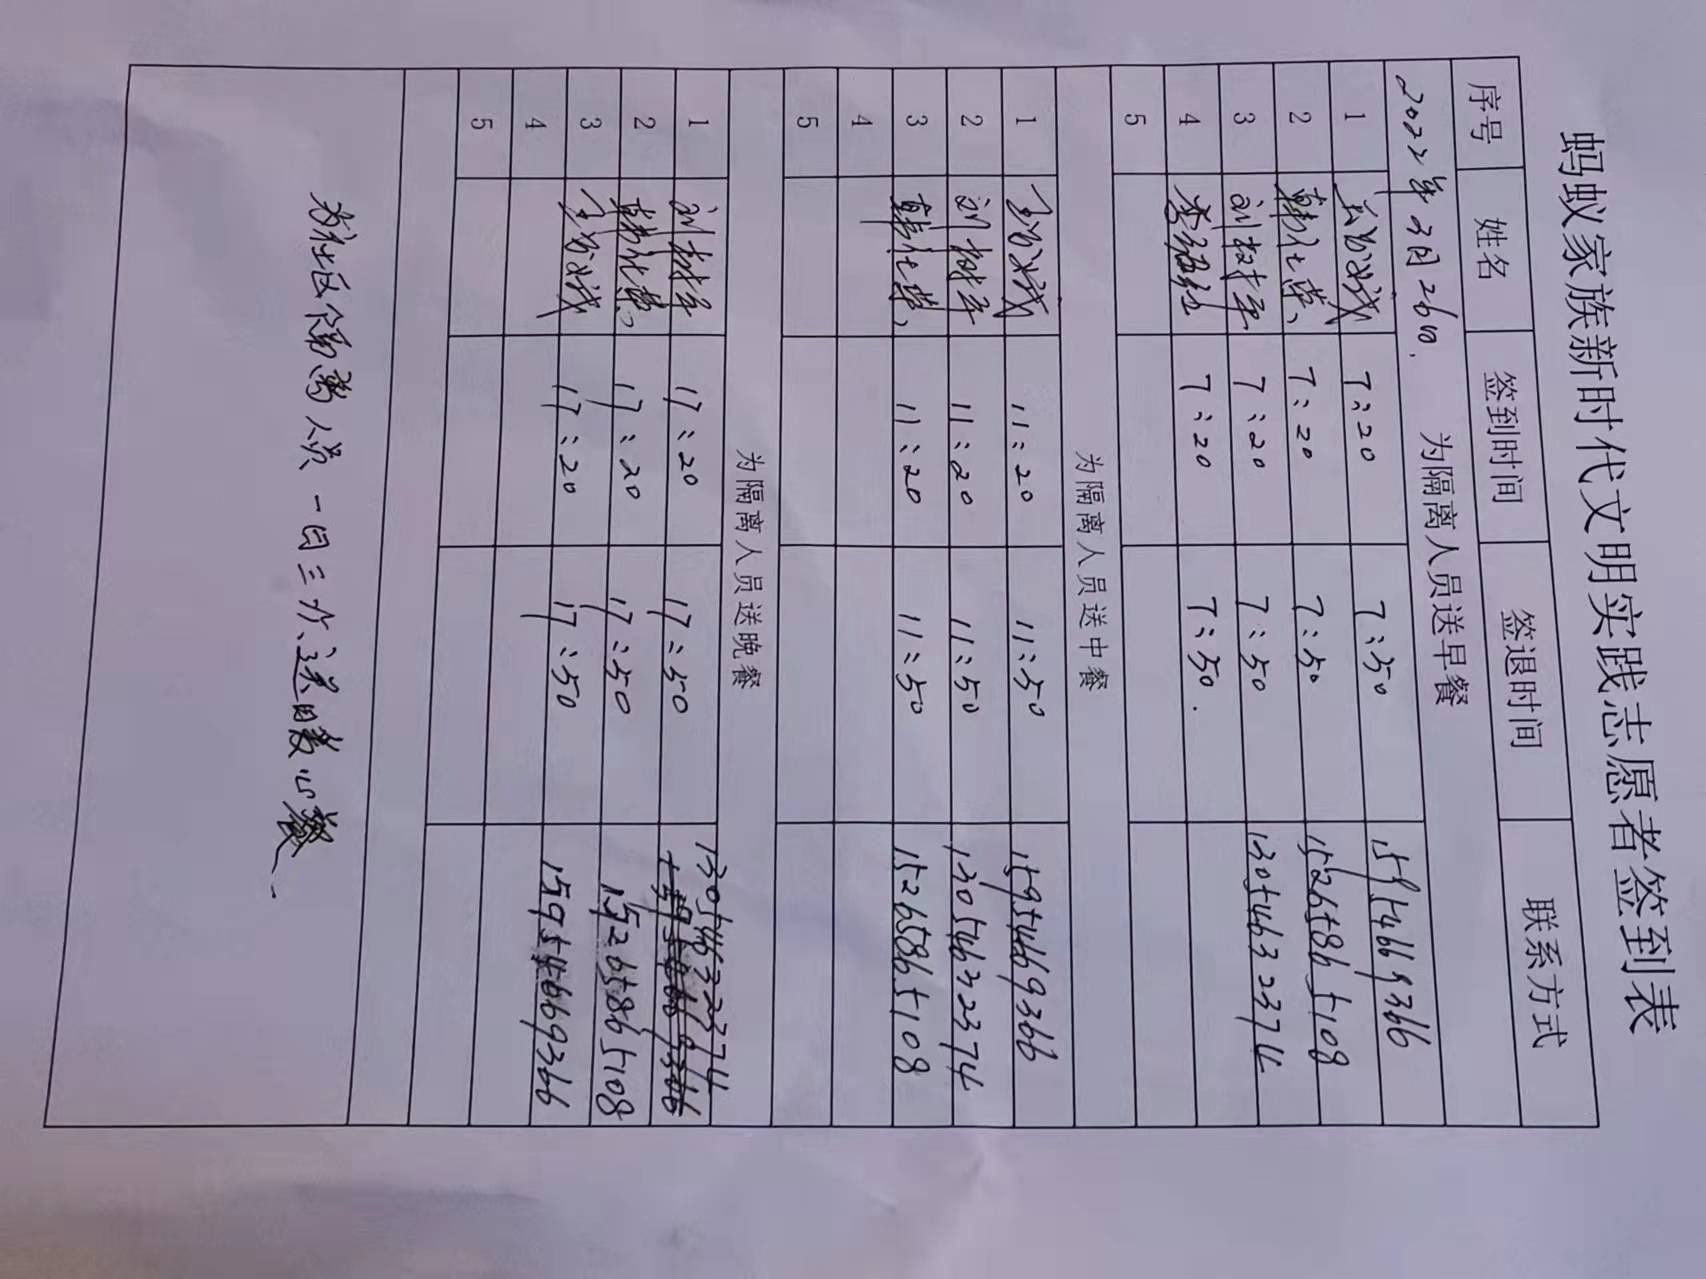 蚂蚁家族新时代文明实践志愿者签到表
序号 姓名 签到时间 签退时间 联系方式
2022年3月26日. 为隔离人员送早餐
1 7:20 7:50 15954669366
2 韩化荣 7:20 7:50 15265865108
3 刘树军 7:20 7:50 13054632374
4 7:20 7:50.
5
为隔离人员送中餐
1 11:20 11:50 15954669366
2 刘树军 11:20 11:50 13054632374
3 韩化荣 11:20 11:50 15265865108
4
5
为隔离人员送晚餐
1 刘树军 17:20 17:50 13054632374
2 韩化荣 17:20 17:50 15265865108
3 17:20 17:50 15954669366
4
5
为社区隔离人员一日三次送暖心餐.